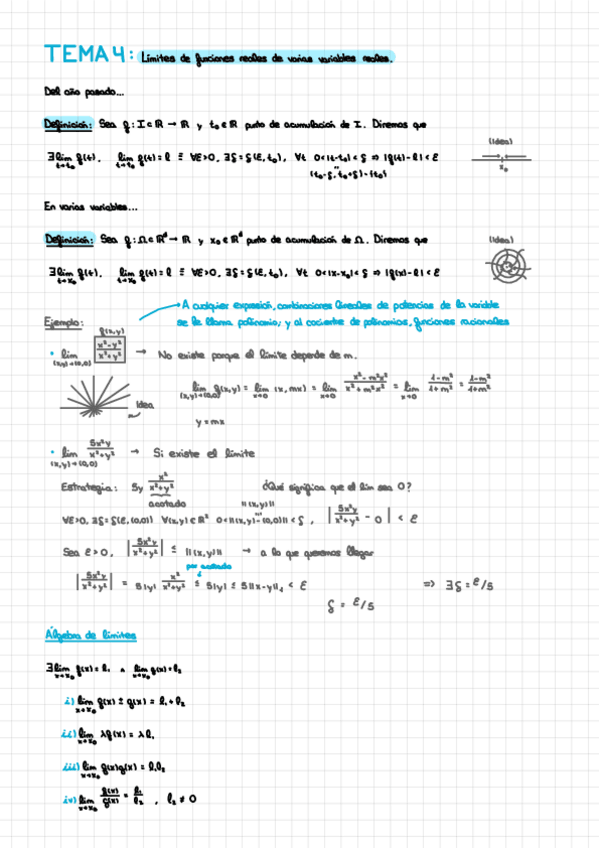 TEMA 4: Límites de funciones reales de varias variables reales.
Del año pasado...
Definición: Sea f: I ⊂ ℝ → ℝ y t₀ ∈ ℝ punto de acumulación de I. Diremos que
(Idea)
∃ lim f(t), lim f(t) = l ≡ ∀ε>0, ∃δ = δ(ε, t₀), ∀t 0<|t-t₀|<δ ⇒ |f(t)-l|<ε
t→t₀ t→t₀
x₀
(t₀-δ, t₀+δ)-{t₀}
En varias variables...
Definición: Sea f: Ω ⊂ ℝᵈ → ℝ y x₀ ∈ ℝᵈ punto de acumulación de Ω. Diremos que
(Idea)
∃ lim f(t), lim f(t) = l ≡ ∀ε>0, ∃δ = δ(ε, t₀), ∀t 0<|x-x₀|<δ ⇒ |f(x)-l|<ε
t→x₀ t→x₀
A cualquier expresión, combinaciones lineales de potencias de la variable
se le llama polinomio, y al cociente de polinomios, funciones racionales
Ejemplo:
f(x,y)
• lim (x²-y²)/(x²+y²) → No existe porque el límite depende de m.
(x,y)→(0,0)
lim f(x,y) = lim (x, mx) = lim (x²-m²x²)/(x²+m²x²) = lim (1-m²)/(1+m²) = (1-m²)/(1+m²)
(x,y)→(0,0) x→0 x→0 x→0
Idea
y = mx
• lim 5x²y/(x²+y²) → Si existe el límite
(x,y)→(0,0)
Estrategia: 5y x²/(x²+y²) ¿Qué significa que el lim sea 0?
acotado ||(x,y)||
∀ε>0, ∃δ = δ(ε, (0,0)) ∀(x,y) ∈ ℝ² 0<||(x,y)-(0,0)||<δ, |5x²y/(x²+y²) - 0| < ε
Sea ε>0, |5x²y/(x²+y²)| ≤ ||(x,y)|| → a lo que queremos llegar
por acotado
|5x²y/(x²+y²)| = 5|y| x²/(x²+y²) ≤ 5|y| ≤ 5||x-y||₁ < ε ⇒ ∃δ = ε/5
δ = ε/5
Álgebra de límites
∃ lim f(x) = l₁ ∧ lim g(x) = l₂
x→x₀ x→x₀
i) lim f(x) ± g(x) = l₁ + l₂
x→x₀
ii) lim λf(x) = λl₁
x→x₀
iii) lim f(x)g(x) = l₁l₂
x→x₀
iv) lim f(x)/g(x) = l₁/l₂ , l₂ ≠ 0
x→x₀